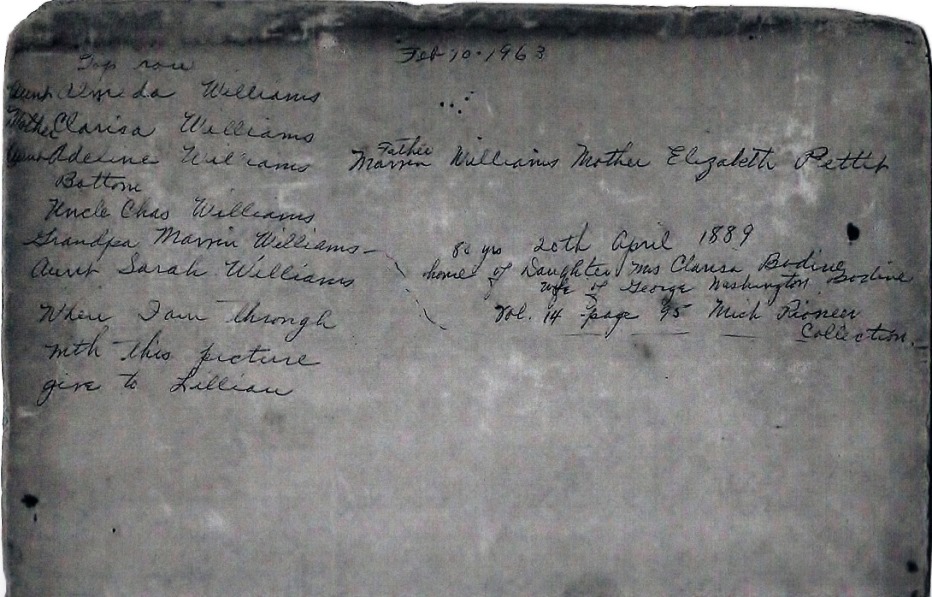 Feb 10 - 1963
Top row
Aunt Almeda Williams
Mother Clarisa Williams
Aunt Adeline Williams
Bottom
Uncle Chas Williams
Grandpa Marvin Williams -
Aunt Sarah Williams
When I am through
with this picture
give to Lillian
Father
Marvin Williams Mother Elizabeth Pettit
80 yrs 20th April 1889
home of Daughter Mrs Clarisa Bodine
wife of George Washington Bodine
Vol. 14 - page 95 Mich Pioneer
Collection.